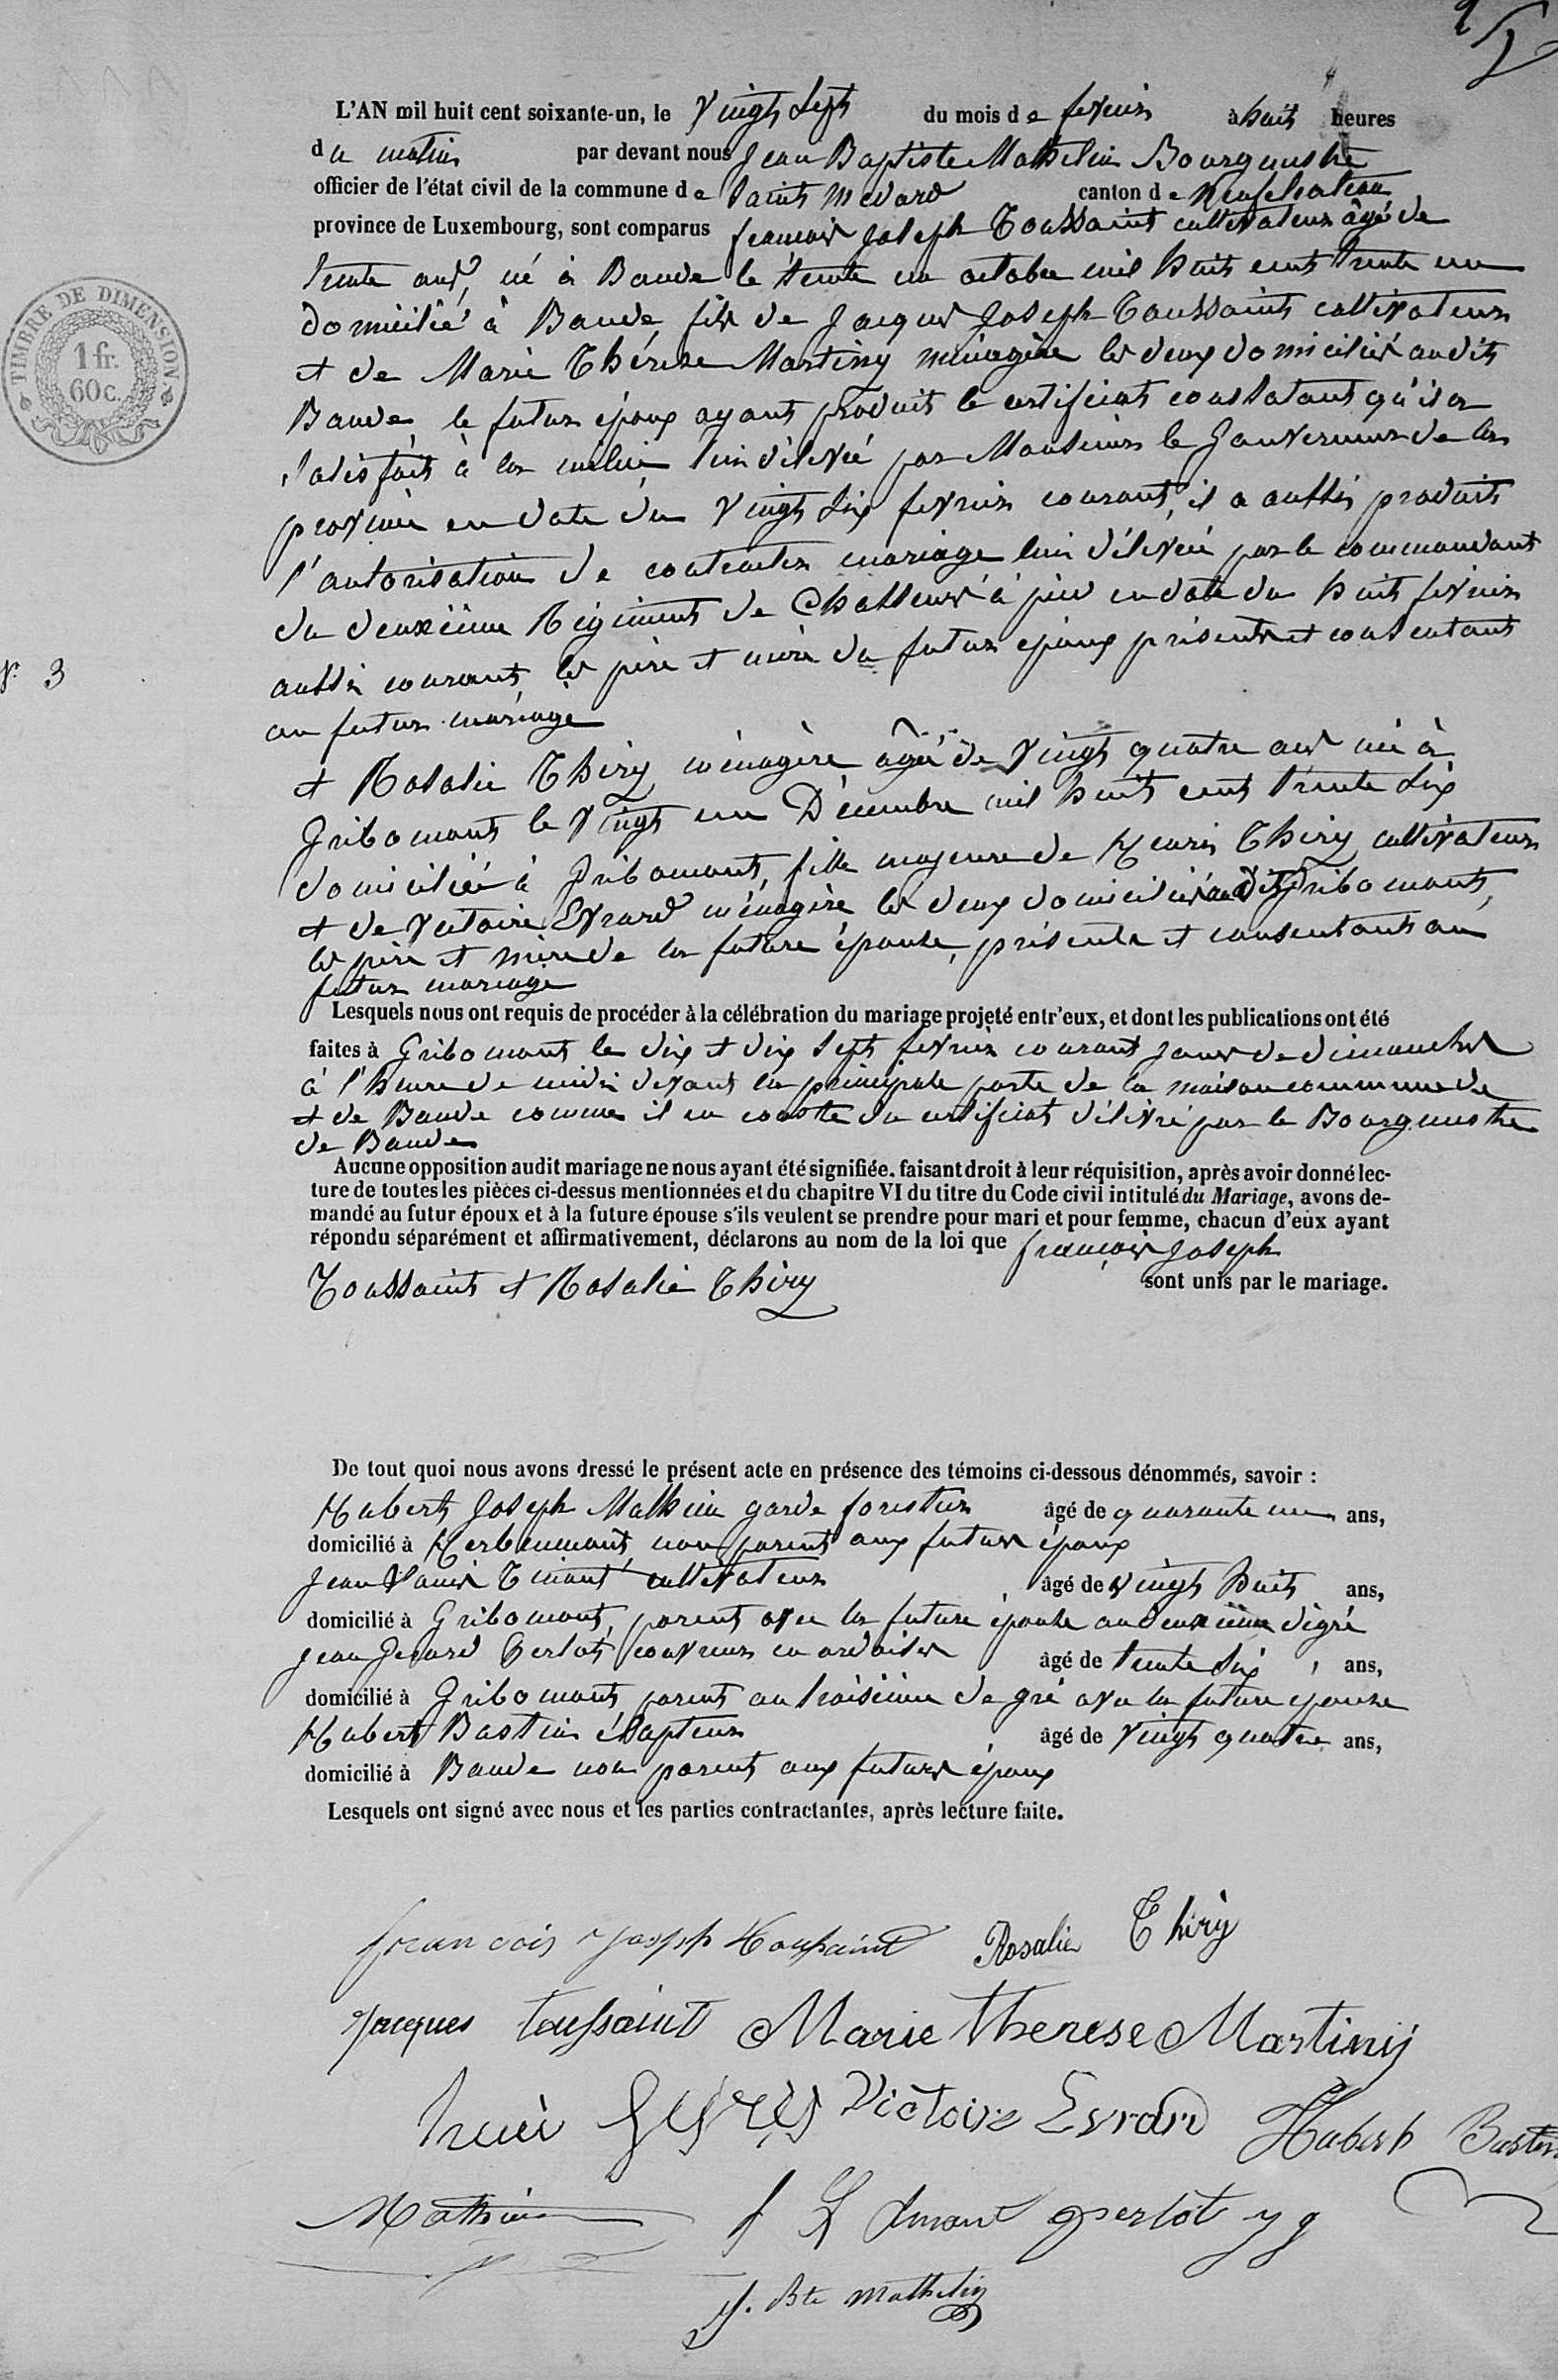 L'AN mil huit cent soixante-un, le Vingt Sept du mois de fevrier à huit heures
du matin par devant nous Jean Baptiste Mathelin Bourgmestre
officier de l'état civil de la commune de Saint Medard canton de Neufchateau
province de Luxembourg, sont comparus francois Joseph Toussaint cultivateur âgé de
trente ans, né à Bande le trente un octobre mil huit cent trente un
domicilié à Bande, fils de Jacques Joseph Toussaint cultivateur
et de Marie Thérèse Martiny ménagère les deux domiciliés audit
Bande le futur époux ayant produit le certificat constatant qu'il a
satisfait à la milice lui délivré par Monsieur le Gouverneur de la
province en date du Vingt Six fevrier courant, il a aussi produit
l'autorisation de contracter mariage lui délivrée par le commandant
du deuxième Régiment de Chasseurs à pied en date du huit fevrier
aussi courant, les père et mère du futur époux présents et consentant
N° 3
au futur mariage
et Rosalie Thiry ménagère âgée de Vingt quatre ans née à
Gribomont le Vingt un Décembre mil huit cent trente Six
domiciliée à Gribomont, fille majeure de Henri Thiry cultivateur
et de Victoire Evrard ménagère les deux domiciliés audit Gribomont,
les père et mère de la future épouse, présents et consentant au
futur mariage
Lesquels nous ont requis de procéder à la célébration du mariage projeté entr'eux, et dont les publications ont été
faites à Gribomont le dix et dix Sept fevrier courant jours de dimanches
à l'heure de midi devant la principale porte de la maison commune de
et de Bande comme il en conste du certificat délivré par le Bourgmestre
de Bande
Aucune opposition audit mariage ne nous ayant été signifiée. faisant droit à leur réquisition, après avoir donné lec-
ture de toutes les pièces ci-dessus mentionnées et du chapitre VI du titre du Code civil intitulé du Mariage, avons de-
mandé au futur époux et à la future épouse s'ils veulent se prendre pour mari et pour femme, chacun d'eux ayant
répondu séparément et affirmativement, déclarons au nom de la loi que francois Joseph
Toussaint et Rosalie Thiry sont unis par le mariage.
De tout quoi nous avons dressé le présent acte en présence des témoins ci-dessous dénommés, savoir :
Hubert Joseph Mathieu garde forestier âgé de quarante un ans,
domicilié à Herbeumont non parent aux futurs époux
Jean Louis Timant cultivateur âgé de vingt huit ans,
domicilié à Gribomont, parent avec la future épouse au deuxième dégré
Jean Gerard Perlot couvreur en ardoises âgé de trente Six ans,
domicilié à Gribomont parent au troisième degré avec la future epouse
Hubert Bastin âgé de Vingt quatre ans,
domicilié à Bande non parent aux futurs époux
Lesquels ont signé avec nous et les parties contractantes, après lecture faite.
francois joseph toussaint Rosalie Thiry
Jacques toussaint Marie Therese Martiny
Victoire Evrard Hubert Bastin
Mathieu perlot j g
J. Bte Mathelin
TIMBRE DE DIMENSION.
1 fr.
60 c.